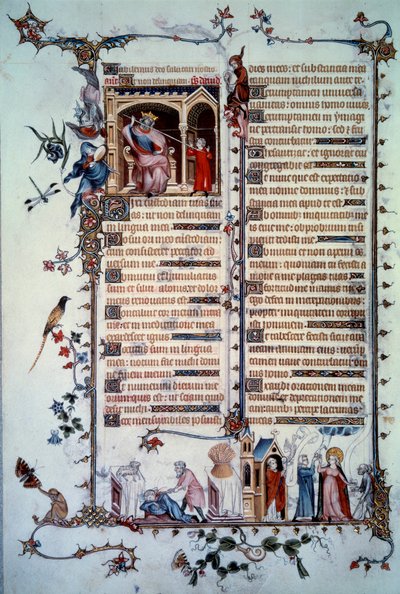 Iubilemus deo salutari nostro
Ut non delinquam. ps dauid
ixi custodiam uias me
as: ut non delinquam
in lingua mea.
Posui ori meo custodiam
cum consisteret peccator ad
uersum me.
Obmutui et humiliatus
sum et silui a bonis: et dolor
meus renouatus est
Concaluit cor meum intra
me: et in meditatione mea
exardescet ignis
Locutus sum in lingua
mea: notum fac michi domi
ne finem meum
Et numerum dierum me
orum quis est: ut sciam quid
desit michi
Ecce mensurabiles posuisti
dies meos: et substantia mea
tanquam nichilum ante te.
Verumptamen uniuersa
uanitas: omnis homo
Verumptamen in ymagi
ne pertransit homo: sed et frus
tra conturbatur
Thesaurizat: et ignorat cui
congregabit ea
Et nunc que est expectatio
mea nonne dominus: et sub
stantia mea apud te est.
Ab omnibus iniquitatibus me
is erue me: obprobrium insi
pienti dedisti me
Obmutui et non aperui os
meum: quoniam tu fecisti a
moue a me plagas tuas
A fortitudine manus tue
ego defeci in increpationibus:
propter iniquitatem corripu
isti hominem
Et tabescere fecisti sicut ara
neam animam eius: uerump
tamen uane conturbatur om
nis homo.
Exaudi orationem meam
domine et deprecationem me
am: auribus percipe lacrimas